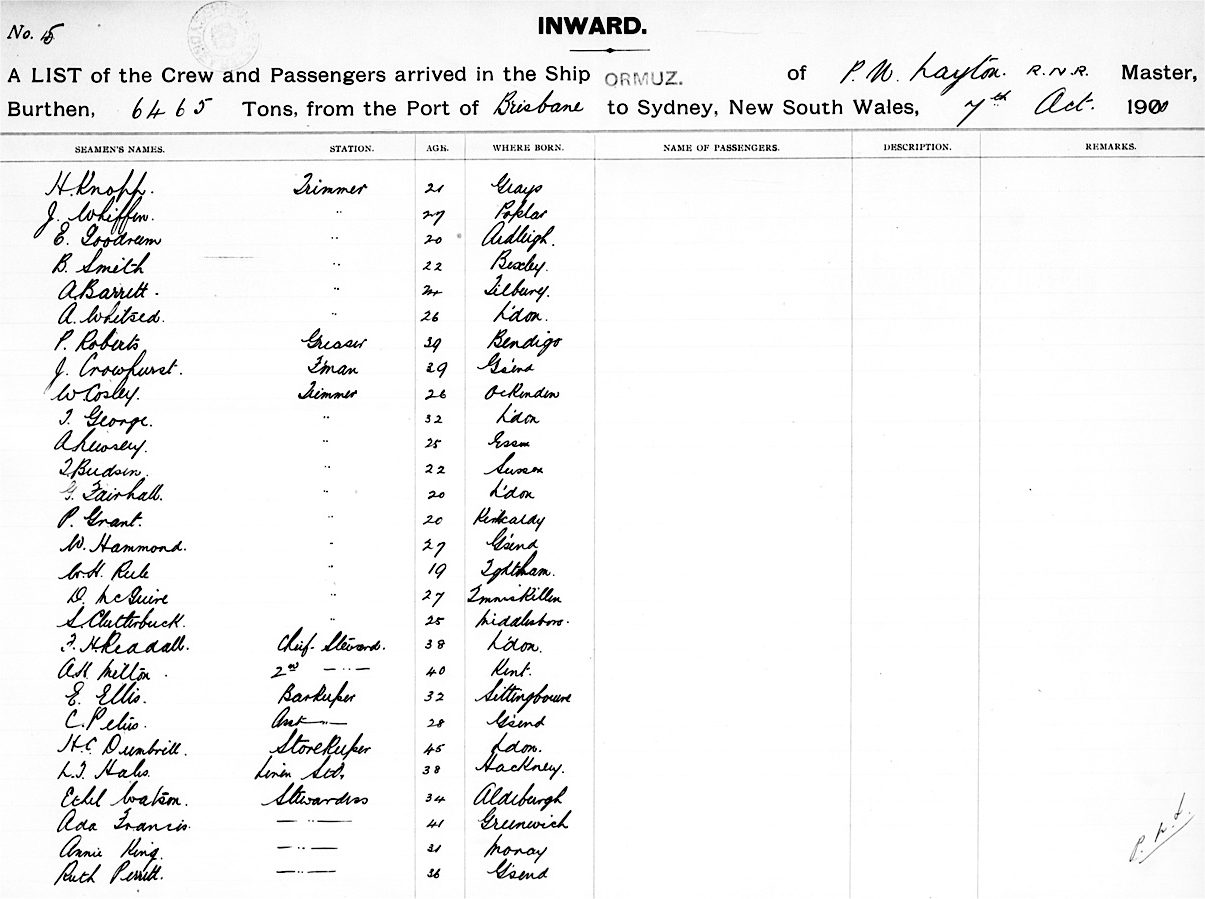 No. 5
INWARD.
A LIST of the Crew and Passengers arrived in the Ship ORMUZ. of P. N. Layton. R.N.R. Master,
Burthen, 6465 Tons, from the Port of Brisbane to Sydney, New South Wales, 7th Oct. 1900
SEAMEN'S NAMES. STATION. AGE. WHERE BORN. NAME OF PASSENGERS. DESCRIPTION. REMARKS.
H. Knopp. Trimmer 21 Grays
J. Whiffin. " 27 Poplar
E. Goodrum " 20 Ardleigh.
B. Smith " 22 Bexley.
A Barrett. " 24 Tilbury.
A. Whitsed. " 26 L'don.
P. Roberts Greaser 39 Bendigo
J. Crowhurst. F'man 29 G'send
W Cosley. Trimmer 26 Ockenden
T. George. " 32 L'don
A Livosey. " 25 Essex
T. Budsin. " 22 Sussex
G. Fairhall. " 20 L'don
P. Grant. " 20 Kirkcaldy
W. Hammond. " 27 G'send
W. H. Rule " 19 Ightham.
D. McGuire " 27 Inniskillen
S. Clutterbuck. " 25 Middlesboro.
F. H Readall. Chief Steward. 38 L'don.
A H. Milton. 2nd —"— 40 Kent.
E. Ellis. Barkeeper 32 Sittingbourne
C. Petus. Asst —"— 28 G'send
H. C. Dumbrill. Storekeeper 45 L'don.
L. T. Hales. Linen Std. 38 Hackney.
Ethel Watson. Stewardess 34 Aldeburgh
Ada Francis. —"— 41 Greenwich
Annie King. —"— 31 Moray
Ruth Perrett. —"— 36 G'send